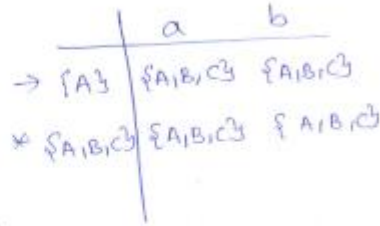 a b
→ {A} {A,B,C} {A,B,C}
* {A,B,C} {A,B,C} {A,B,C}